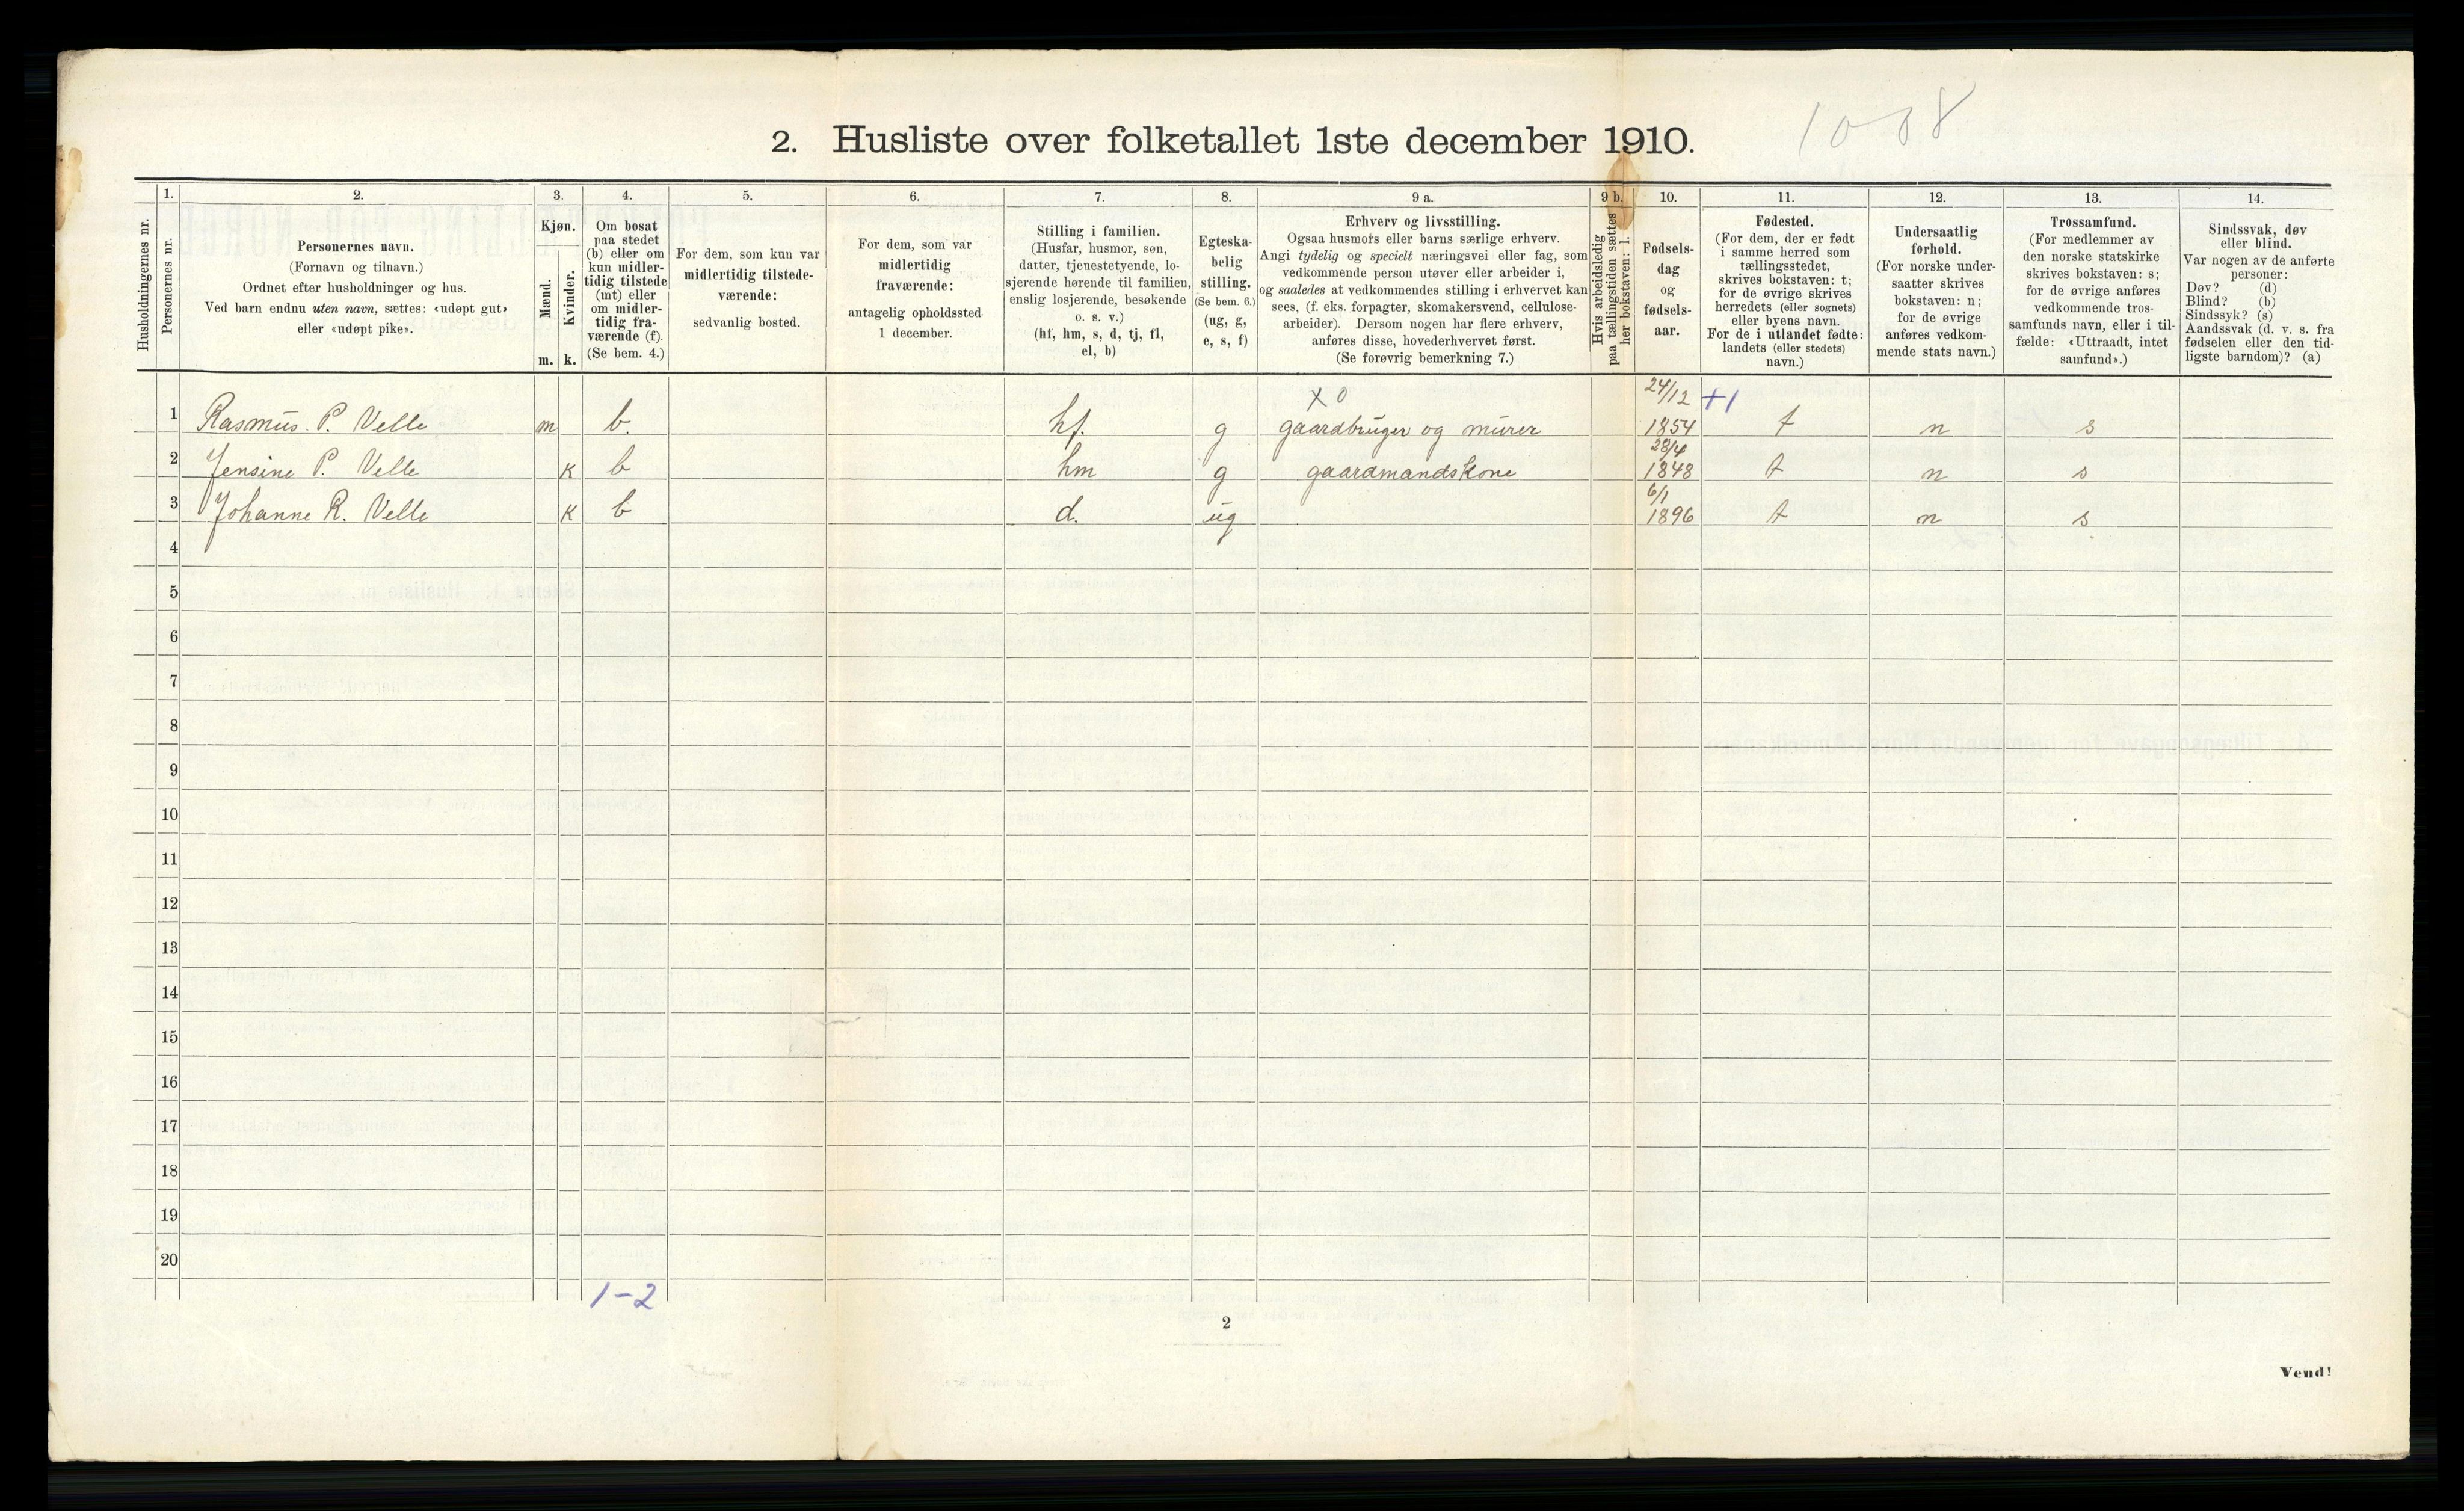 1008
2. Husliste over folketallet 1ste december 1910.
Husholdningernes nr.
1.
Personernes nr.
2.
Personernes navn.
(Fornavn og tilnavn.)
Ordnet efter husholdninger og hus.
Ved barn endnu uten navn, sættes: «udøpt gut»
eller «udøpt pike».
3.
Kjøn.
Mænd.
Kvinder.
m. k.
4.
Om bosat
paa stedet
(b) eller om
kun midler-
tidig tilstede
(mt) eller
om midler-
tidig fra-
værende (f).
(Se bem. 4.)
5.
For dem, som kun var
midlertidig tilstede-
værende:
sedvanlig bosted.
6.
For dem, som var
midlertidig
fraværende:
antagelig opholdssted
1 december.
7.
Stilling i familien.
(Husfar, husmor, søn,
datter, tjenestetyende, lo-
sjerende hørende til familien,
enslig losjerende, besøkende
o. s. v.)
(hf, hm, s, d, tj, fl,
el, b)
8.
Egteska-
belig
stilling.
(Se bem. 6.)
(ug, g,
e, s, f)
9 a.
Erhverv og livsstilling.
Ogsaa husmors eller barns særlige erhverv.
Angi tydelig og specielt næringsvei eller fag, som
vedkommende person utøver eller arbeider i,
og saaledes at vedkommendes stilling i erhvervet kan
sees, (f. eks. forpagter, skomakersvend, cellulose-
arbeider). Dersom nogen har flere erhverv,
anføres disse, hovederhvervet først.
(Se forøvrig bemerkning 7.)
9 b.
Hvis arbeidsledig
paa tællingstiden sættes
her bokstaven: l.
10.
Fødsels-
dag
og
fødsels-
aar.
11.
Fødested.
(For dem, der er født
i samme herred som
tællingsstedet,
skrives bokstaven: t;
for de øvrige skrives
herredets (eller sognets)
eller byens navn.
For de i utlandet fødte:
landets (eller stedets)
navn.)
12.
Undersaatlig
forhold.
(For norske under-
saatter skrives
bokstaven: n;
for de øvrige
anføres vedkom-
mende stats navn.)
13.
Trossamfund.
(For medlemmer av
den norske statskirke
skrives bokstaven: s;
for de øvrige anføres
vedkommende tros-
samfunds navn, eller i til-
fælde: «Uttraadt, intet
samfund».)
14.
Sindssvak, døv
eller blind.
Var nogen av de anførte
personer:
Døv? (d)
Blind? (b)
Sindssyk? (s)
Aandssvak (d. v. s. fra
fødselen eller den tid-
ligste barndom)? (a)
x 0 24/12 +1
1 Rasmus P. Velle m b. hf. g gaardbruger og murer 1854 t n s
28/4
2 Jensine P. Velle k b hm g gaardmandskone 1848 t n s
6/1
3 Johanne R. Velle k b d. ug 1896 t n s
4
5
6
7
8
9
10
11
12
13
14
15
16
17
18
19
20
1-2
2
Vend!